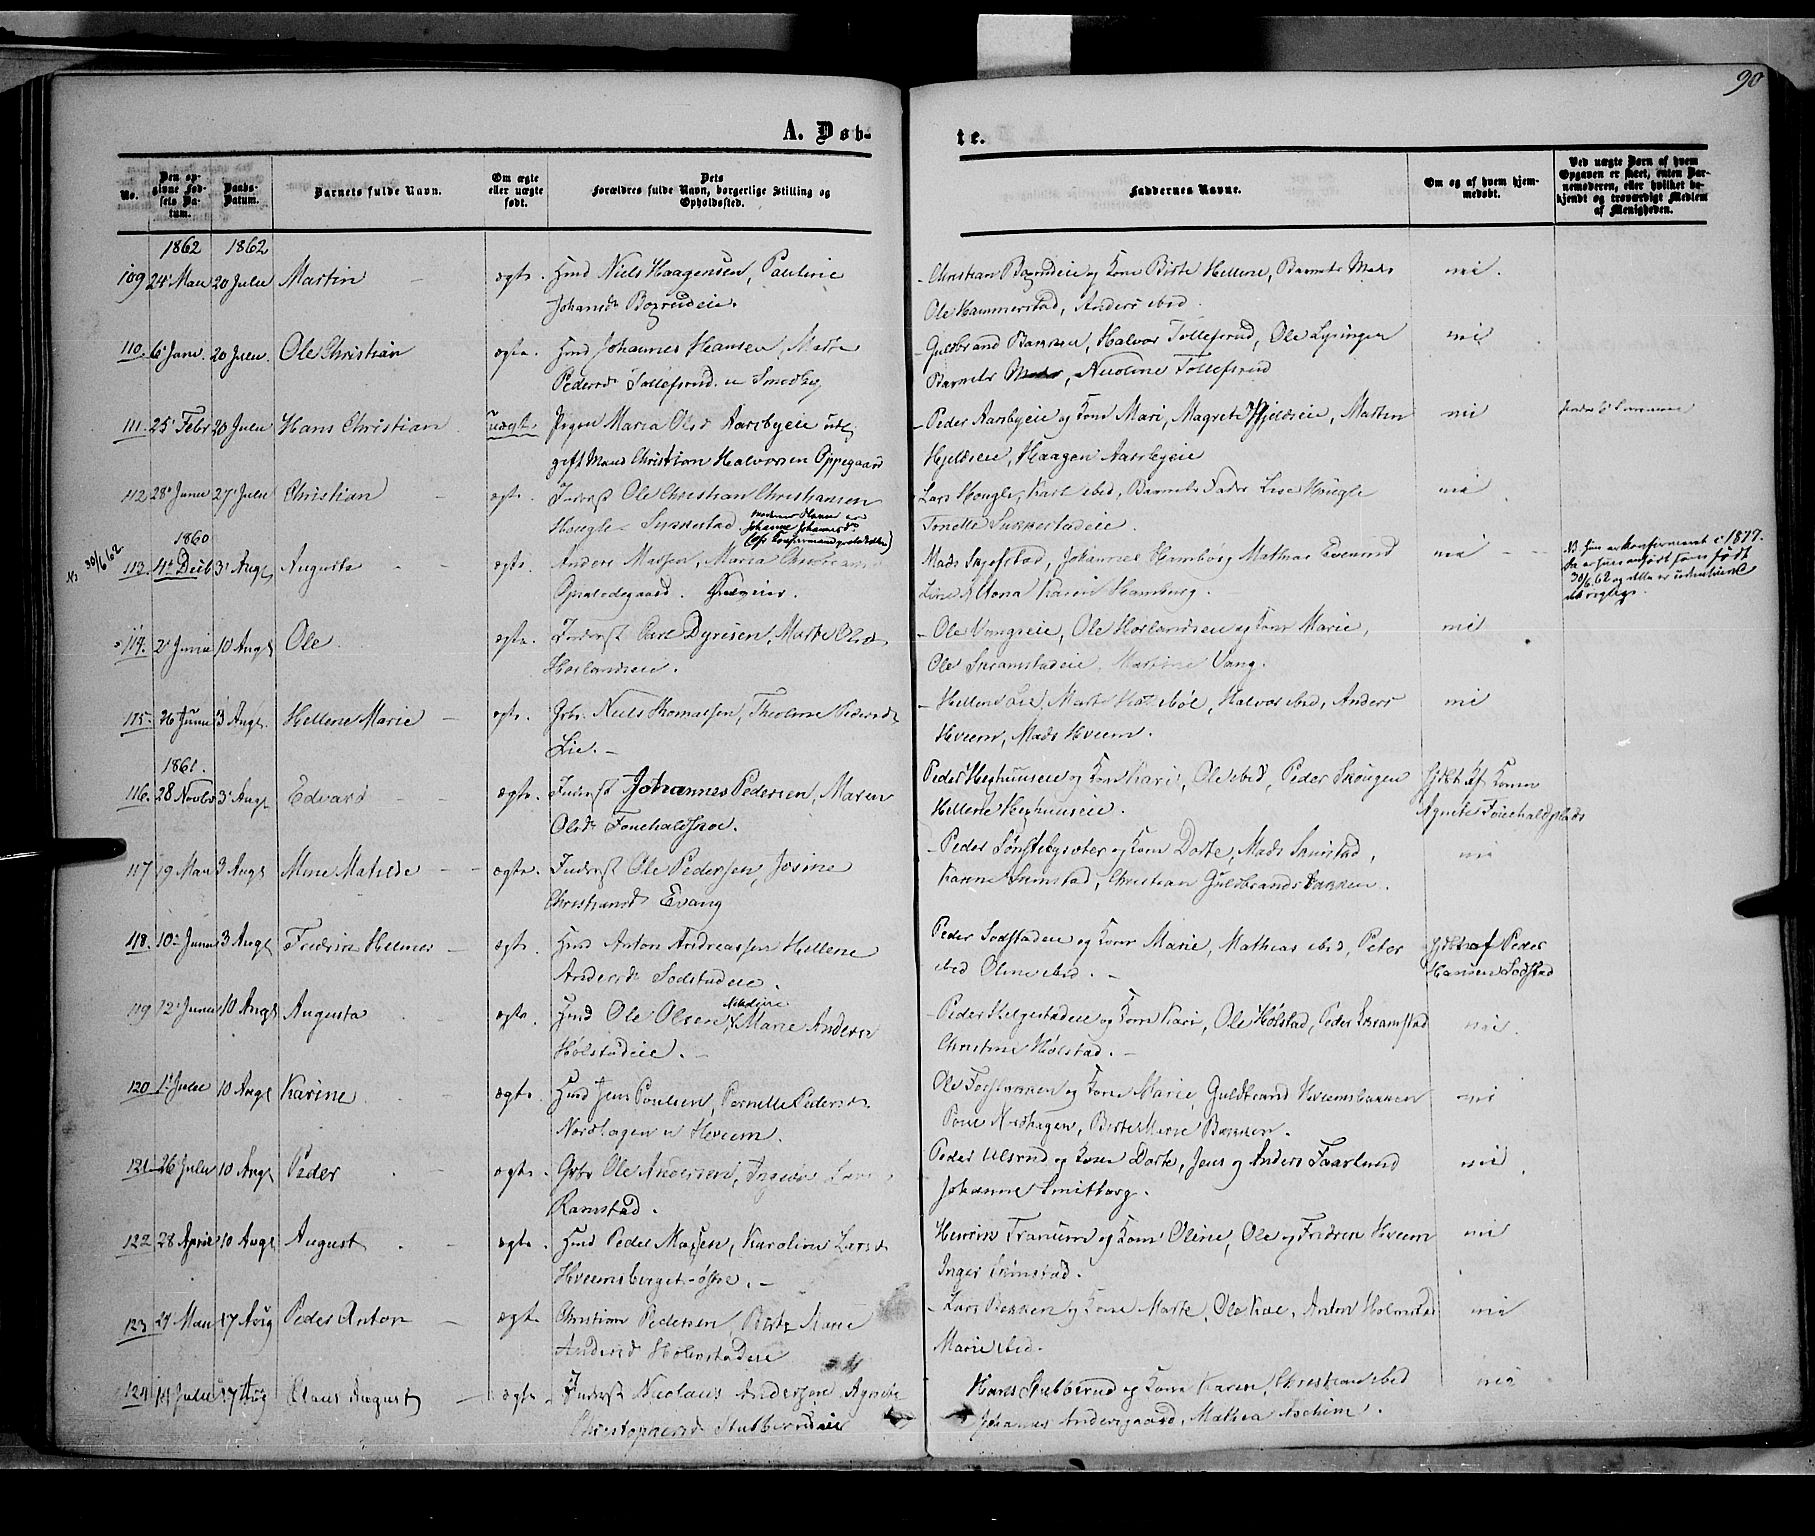 90
A. Døb-
te.
No.
Den opgivne Fødsels Datum.
Daabs-Datum.
Barnets fulde Navn.
Om ægte eller uægte født.
Dets Forældres fulde Navn, borgerlige Stilling og Opholdssted.
Faddernes Navne.
Om og af hvem hjemmedøbt.
Ved uægte Børn af hvem Opgaven er skeet, enten Barnemoderen, eller hvilket bekjendt og troværdigt Medlem af Menigheden.
1862 1862
109 24 Mai 20 Julii Martin ægte. Hmd Niels Haagensen, Pauline
Johansd
Christian og Kone Birte Hellene, Barnets
Ole Hammerstad, Anders ibid.
nei.
110. 6 Juni 20 Julii Ole Christian ægte. Hmd Johannes Hansen, Marte
Pedersd Tollefsrud u Smedby
Guldbrand Bakken, Halvor Tollefsrud, Ole
Barnets Moder, Nicoline Tollefsrud
nei
111. 25 Febr 20 Julii Hans Christian Uægte. Pigen Maria Olsd Aarsbyeie udl
gift Mand Christian Halvorsen Oppegaard
Peder Aarsbyeie og Kone Mari, Magrete Hjeldseie, Morten
Hjeldseie, Haagen Aarsbyeie
nei
112 28 Juni 27 Julii Christian ægte. Inderst Ole Christian Christiansen
Hougle Sukkestad
Lars Hougle, Karl ibid, Barnets Fader Lise Hougle
Tonette Sukkestadeie.
nei
Moderens Navn er
Johanne Johannesd
1860
30/6 62
113. 4 Decb 3 Augt Augusta ægte. Anders Madsen, Maria
Mads Skjefstad, Johannes Hamborg Mathias Evenrud
Karen Hamborg.
nei
NB hun er konfirmeret i 1877.
da er hun anført som født
30/6.62 og dette er
det rigtige.
114. 2 Junii 10 Augt Ole ægte. Inderst Carl Dyresen, Marte Olsd
Horlandseie.
Ole Vangseie, Ole Horlandseie og Kone Marie,
Ole Skramstadeie, Martine Vang.
nei
115. 26 Juni 3 Augt. Hellene Marie ægte. Grbr Niels Thomassen, Theoline Pedersd
Lie.
Hellene Lie, Marte, Halvor ibid, Anders
Hveem, Mads Hveem.
nei
1861.
116. 28 Novbr 3 Augt Edvard ægte. Inderst Johannes Pedersen, Maren
Olsd
Peder Heghuuseie og Kone Kari, Ole ibid, Peder Skougen
Hellene Heghuuseie.
Hjdbt af Konen
Agnete
117 19 Mai 3 Augt Mine Matilde ægte. Inderst Ole Pedersen, Josine
Christiansd Evang
Peder Sønstebysæter og Kone Dorte, Mads
Karine, Christian Guldbrandsbakken.
nei
118. 10 Juni 3 Augt Fredrik Helmer ægte. Hmd Anton Andreassen Hellene
Andersd Sodstadeie.
Peder Sodstadeie og Kone Marie, Mathias ibid, Peter
ibid Oline ibid.
Hjdbt af Peder
Hansen Sodstad
119 12 Juni 10 Augt Augusta ægte. Hmd Ole Olsen, Marie Andersd
Hølstadeie.
Peder Helgestadeie og Kone Kari, Ole Hølstad, Peder Skramstad
Christine Hølstad.
nei.
120 1 Julii 10 Augt Karine ægte. Hmd Jens Poulsen, Pernille Pedersd
Nordhagen u Hveem.
Ole og Kone Marie, Guldbrand Hveemsbakken
Poul Nordhagen, Birte Marie Bakken.
nei
121 26 Julii 10 Augt Peder ægte. Grbr Ole Andersen, Ingebor
Ramstad.
Peder Ulsrud og Kone Dorte, Jens og Anders Faarlund
Johanne Smitborg.
nei
122 28 April 10 Augt August ægte. Hmd Peder, Karoline Larsd
Hveemsberget-østre.
Henrik Tranum og Kone Oline, Ole og Fredrik Hveem
Inger
nei
123 27 Mai 17 Aug Peder Anton ægte Christian Pedersen Birte Marie
Andersd Holmstadeie
Lars Bakken og Kone Marte, Ole, Anton Holmstad
Marie ibid.
nei
124 14 Julii 17 Aug Klaus August ægte Inderst Nicolaus Andersen Agnete
Christophersd Stubberudeie
Hans Stubberud og Kone Karen, Christian ibid
Johannes Andersgaard, Mathea Aschim.
nei